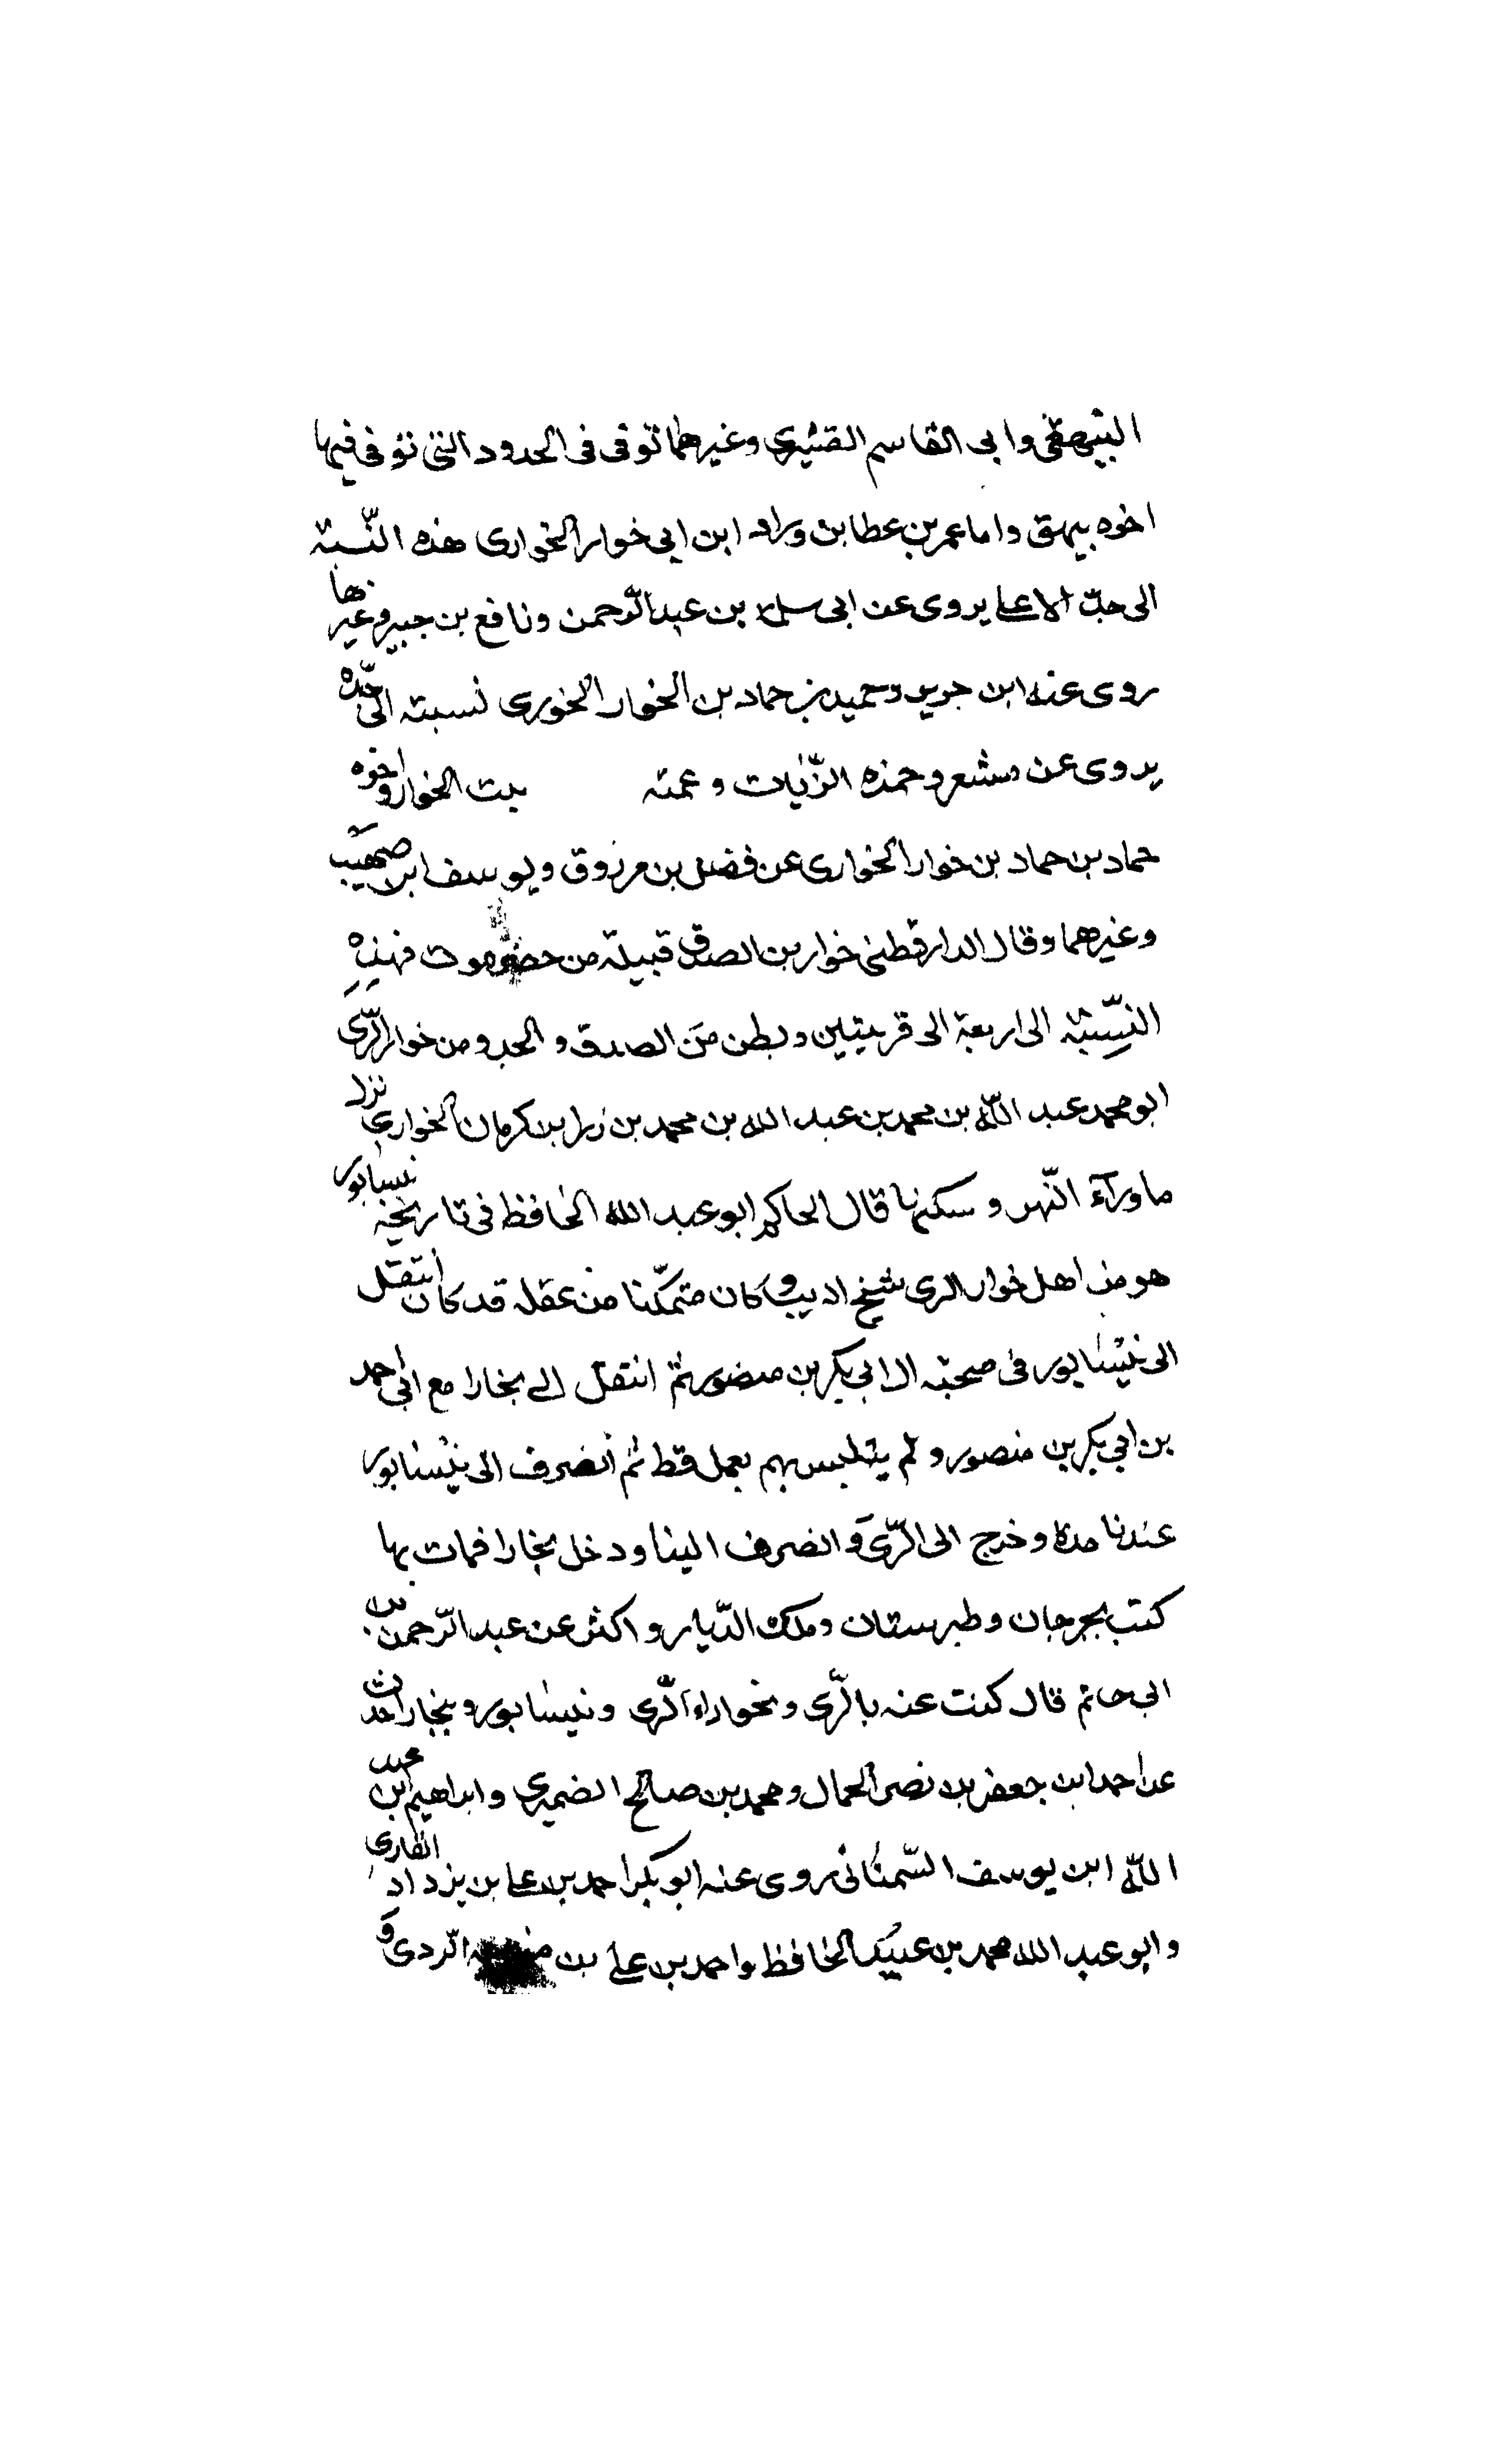 البيهقي وابى القاسم القشيرى وغيرهما توفى فى الحدود التى توفى فيها
اخوه ببيهق واما عمر بن عطا بن وراد ابن ابى خوار الخوارى هذه النّسبة
الى جدّ الاعلى يروى عن ابى سلمة بن عبد الرّحمن ونافع بن جبير وغيرها
روى عنه ابن جريد وحميد بن حماد بن الخوار الخورى نسبته الى جدّه
يروى عن مسعر وحمزه الزّيات و عمته بنت الخوار واخوه
حماد بن حماد بن خوار الخوارى عن فضل بن مرزوق ويوسف ابن صهيب
وغيرهما وقال الدارقطنى خوار بن الصدق قبيلة من حضرموت فهذه
النّسبة الى اربعة الى قريتين وبطن من الصدق و الجد ومن خوار الرّى
ابو محمد عبد اللّه بن محمد بن عبد الله بن محمد بن زرا بن كرمان الخوارى نزل
ما ورآء النّهر و سكنها قال الحاكم ابو عبد الله الحافظ فى تاريخ نيسابور
هو من اهل خوار الرى شيخ اديب وكان متمكّنا من عقله قد كان انتقل
الى نيسابور فى صحبة ال ابى بكر بن منصور ثم انتقل الى بخارا مع ابى احمد
بن ابى بكر بن منصور و لم يتلبس بهم بعمل قط ثم انصرف الى نيسابور
عندنا مدة و خرج الى الرّى و انصرف الينا و دخل بخارا فمات بها
كتب بجرجان و طبرستان و ملك الدّيار و اكثر عن عبد الرّحمن بن
ابى حاتم قال كتبت عنه بالرّى و بخوار الرّى و نيسابور و ببخارا حدث
عن احمد ابن جعفر بن نصر الحمال و محمد بن صالح الضميرى و ابراهيم ابن محمد
اللّه ابن يوسف السّمنانى روى عنه ابو بكر احمد بن على بن يزداد القارى
و ابو عبد الله محمد بن عبيد الحافظ و احمد بن على بن الردى و